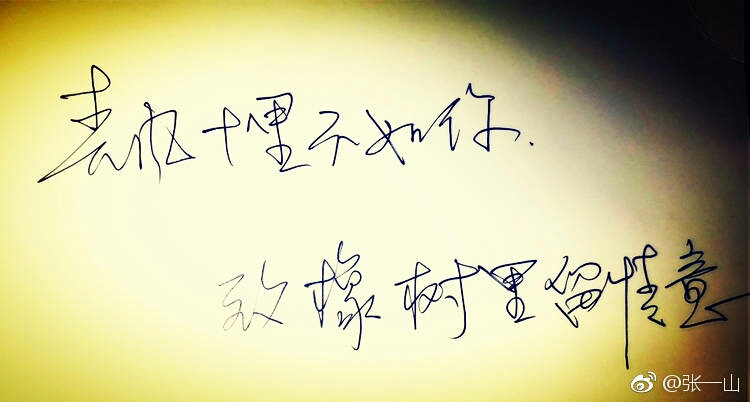 春风十埋不如你.
致橡树里留情意
@张一山